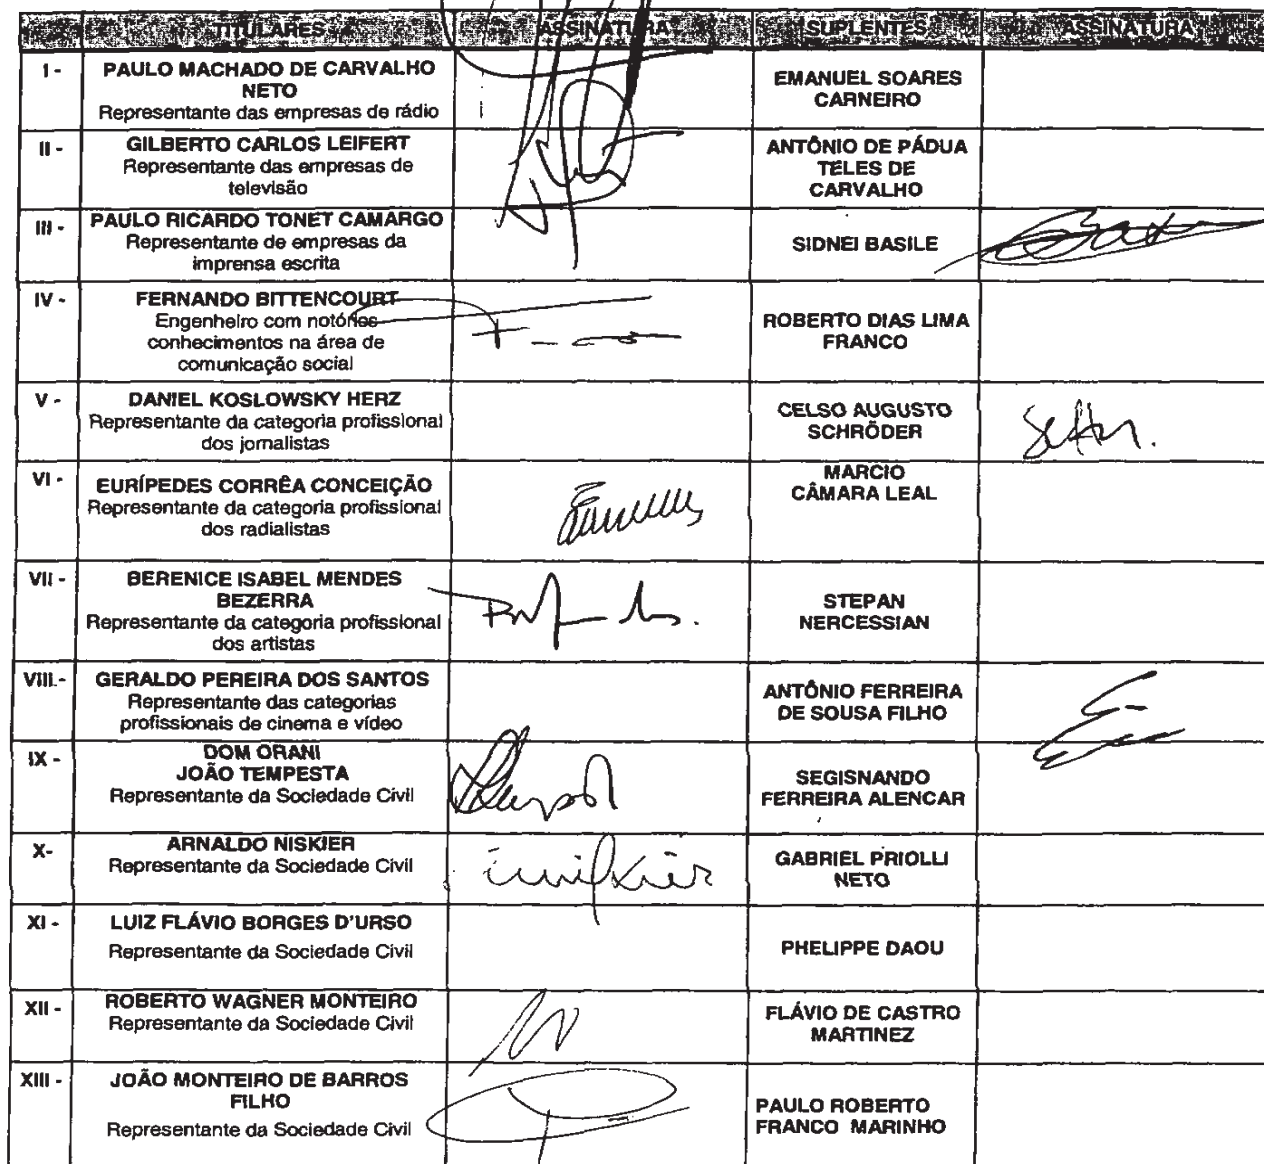 TITULARES ASSINATURA SUPLENTES ASSINATURA
I - PAULO MACHADO DE CARVALHO
NETO
Representante das empresas de rádio
EMANUEL SOARES
CARNEIRO
II - GILBERTO CARLOS LEIFERT
Representante das empresas de
televisão
ANTÔNIO DE PÁDUA
TELES DE
CARVALHO
III - PAULO RICARDO TONET CAMARGO
Representante de empresas da
imprensa escrita
SIDNEI BASILE
IV - FERNANDO BITTENCOURT
Engenheiro com notórios
conhecimentos na área de
comunicação social
ROBERTO DIAS LIMA
FRANCO
V - DANIEL KOSLOWSKY HERZ
Representante da categoria profissional
dos jornalistas
CELSO AUGUSTO
SCHRÖDER
VI - EURÍPEDES CORRÊA CONCEIÇÃO
Representante da categoria profissional
dos radialistas
MARCIO
CÂMARA LEAL
VII - BERENICE ISABEL MENDES
BEZERRA
Representante da categoria profissional
dos artistas
STEPAN
NERCESSIAN
VIII.- GERALDO PEREIRA DOS SANTOS
Representante das categorias
profissionais de cinema e vídeo
ANTÔNIO FERREIRA
DE SOUSA FILHO
IX - DOM ORANI
JOÃO TEMPESTA
Representante da Sociedade Civil
SEGISNANDO
FERREIRA ALENCAR
X- ARNALDO NISKIER
Representante da Sociedade Civil
GABRIEL PRIOLLI
NETO
XI - LUIZ FLÁVIO BORGES D'URSO
Representante da Sociedade Civil
PHELIPPE DAOU
XII - ROBERTO WAGNER MONTEIRO
Representante da Sociedade Civil
FLÁVIO DE CASTRO
MARTINEZ
XIII - JOÃO MONTEIRO DE BARROS
FILHO
Representante da Sociedade Civil
PAULO ROBERTO
FRANCO MARINHO